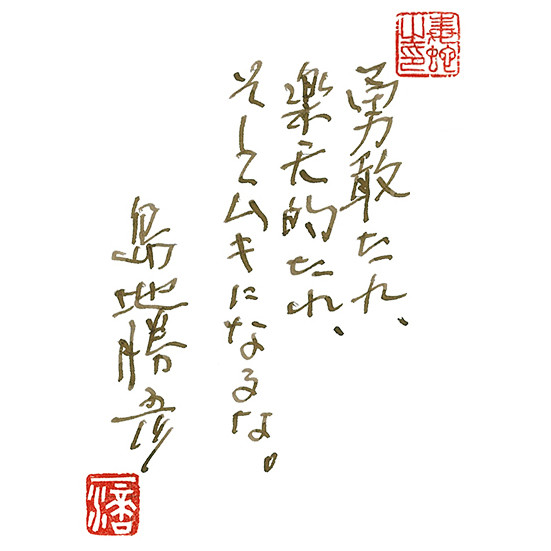 勇敢たれ、
楽天的たれ、
そしてムキになるな。
島地勝彦